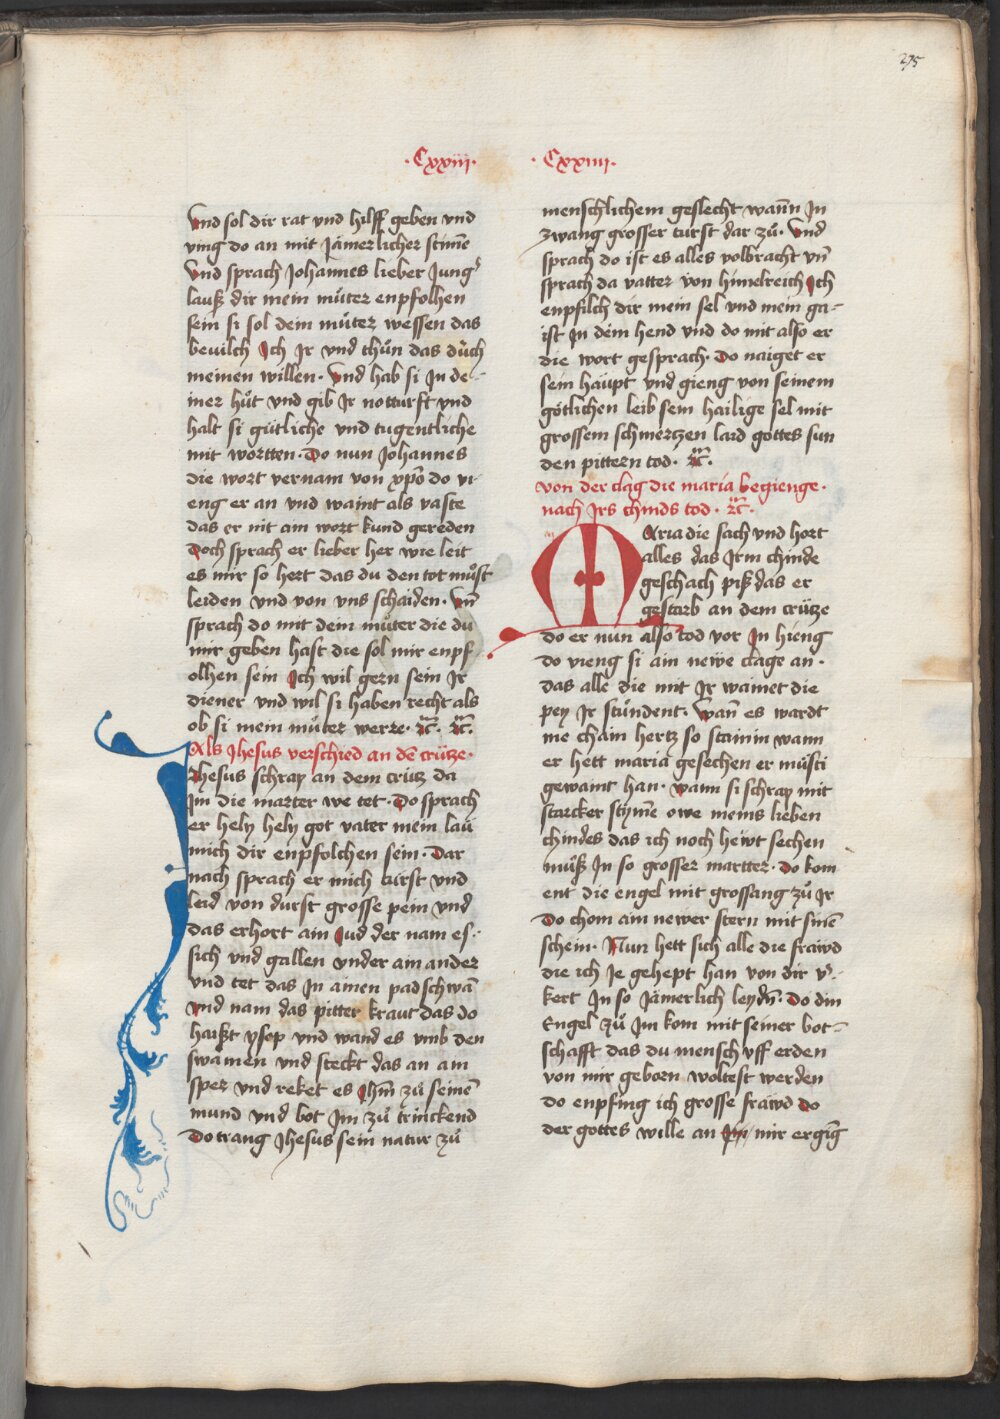 275
·Cxxiii·
Vnd sol dir rat vnd hilff geben vnd
ving do an mit Jämerlicher stim̄e
Vnd sprach Johannes lieber Jung᷑
lauß dir mein můter enpfolhen
sein si sol dein můter wessen das
beuilch Ich Jr vnd thůn das durch
meinen willen · Vnd hab si In de-
iner hůt vnd gib Jr notturft vnd
halt si gůtliche vnd tugentliche
mit wortten · Do nun Johannes
die wort vernam von xp̄o do vi-
eng er an vnd waint als vaste
das er nit ain wort kund gereden
Doch sprach er lieber her wie leit
es mir so hert das du den tot můst
leiden vnd von vns schaiden · Vn̄
sprach do mit dein můter die du
mir geben hast die sol mir enpf
olhen sein Ich wil gern sein Jr
diener vnd wil si haben recht als
ob si mein můter were · ꝛc̄ · ꝛc̄ ·
Als Jhesus verschied an dē crütze ·
Jhesus schray an dem crütz da
Im die marter we tet · Do sprach
er hely hely got vater mein lau
mich dir enpfolchen sein · Dar
nach sprach er mich turst vnd
leid von durst grosse pein vnd
das erhort ain Jud der nam es-
sich vnd gallen vnder ain ander
vnd tet das In ainen padschwā
vnd nam das pitter kraut das do
haißt ysop vnd wand es vmb den
swamen vnd steckt das an ain
sper vnd reket es Jhm̄ zů seinē
mund vnd bot Im zů trinckend
Do trang Jhesus sein natur zů
·Cxxiiii·
menschlichem geslecht wann̄ In
zwang grosser turst dar zů · Vnd
sprach do ist es alles volbracht vn̄
sprach da vatter von himelreich Ich
enpfilch dir mein sel vnd mein ga-
ist In dein hend vnd do mit also er
die wort gesprach · Do naiget er
sein haupt vnd gieng von seinem
götlichen leib sein hailige sel mit
grossem schmertzen laid gottes sun
den pittern tod · ꝛc̄ ·
von der clag die maria begienge ·
nach Jrs chinds tod · ꝛc̄ ·
Maria die sach vnd hort
alles das Irm chinde
geschach piß das er
gestarb an dem crütze
do er nun also tod vor In hieng
do vieng si ain newe clage an ·
das alle die mit Jr wainet die
pey Jr stůndent · Wan̄ es wardt
nie chain hertz so stainin wann
er hett maria gesechen er můsti
gewaint han · wann si schray mit
starcker stym̄e owe meins lieben
chindes das ich noch hewt sechen
můß In so grosser martter · do kom
ent die engel mit grossang zů Jr
Do chom ain newer stern mit sinē
schein · Nun hett sich alle die fraẅd
die ich Je gehept han von dir v᷑-
kert In so Jämerlich leydn̄ · Do din
Engel zů Im kom mit seiner bot-
schafft das du mensch vff erden
von mir geborn woltest werden
do enpfing ich grosse fraẅd do
der gottes wille an Im mir ergīg